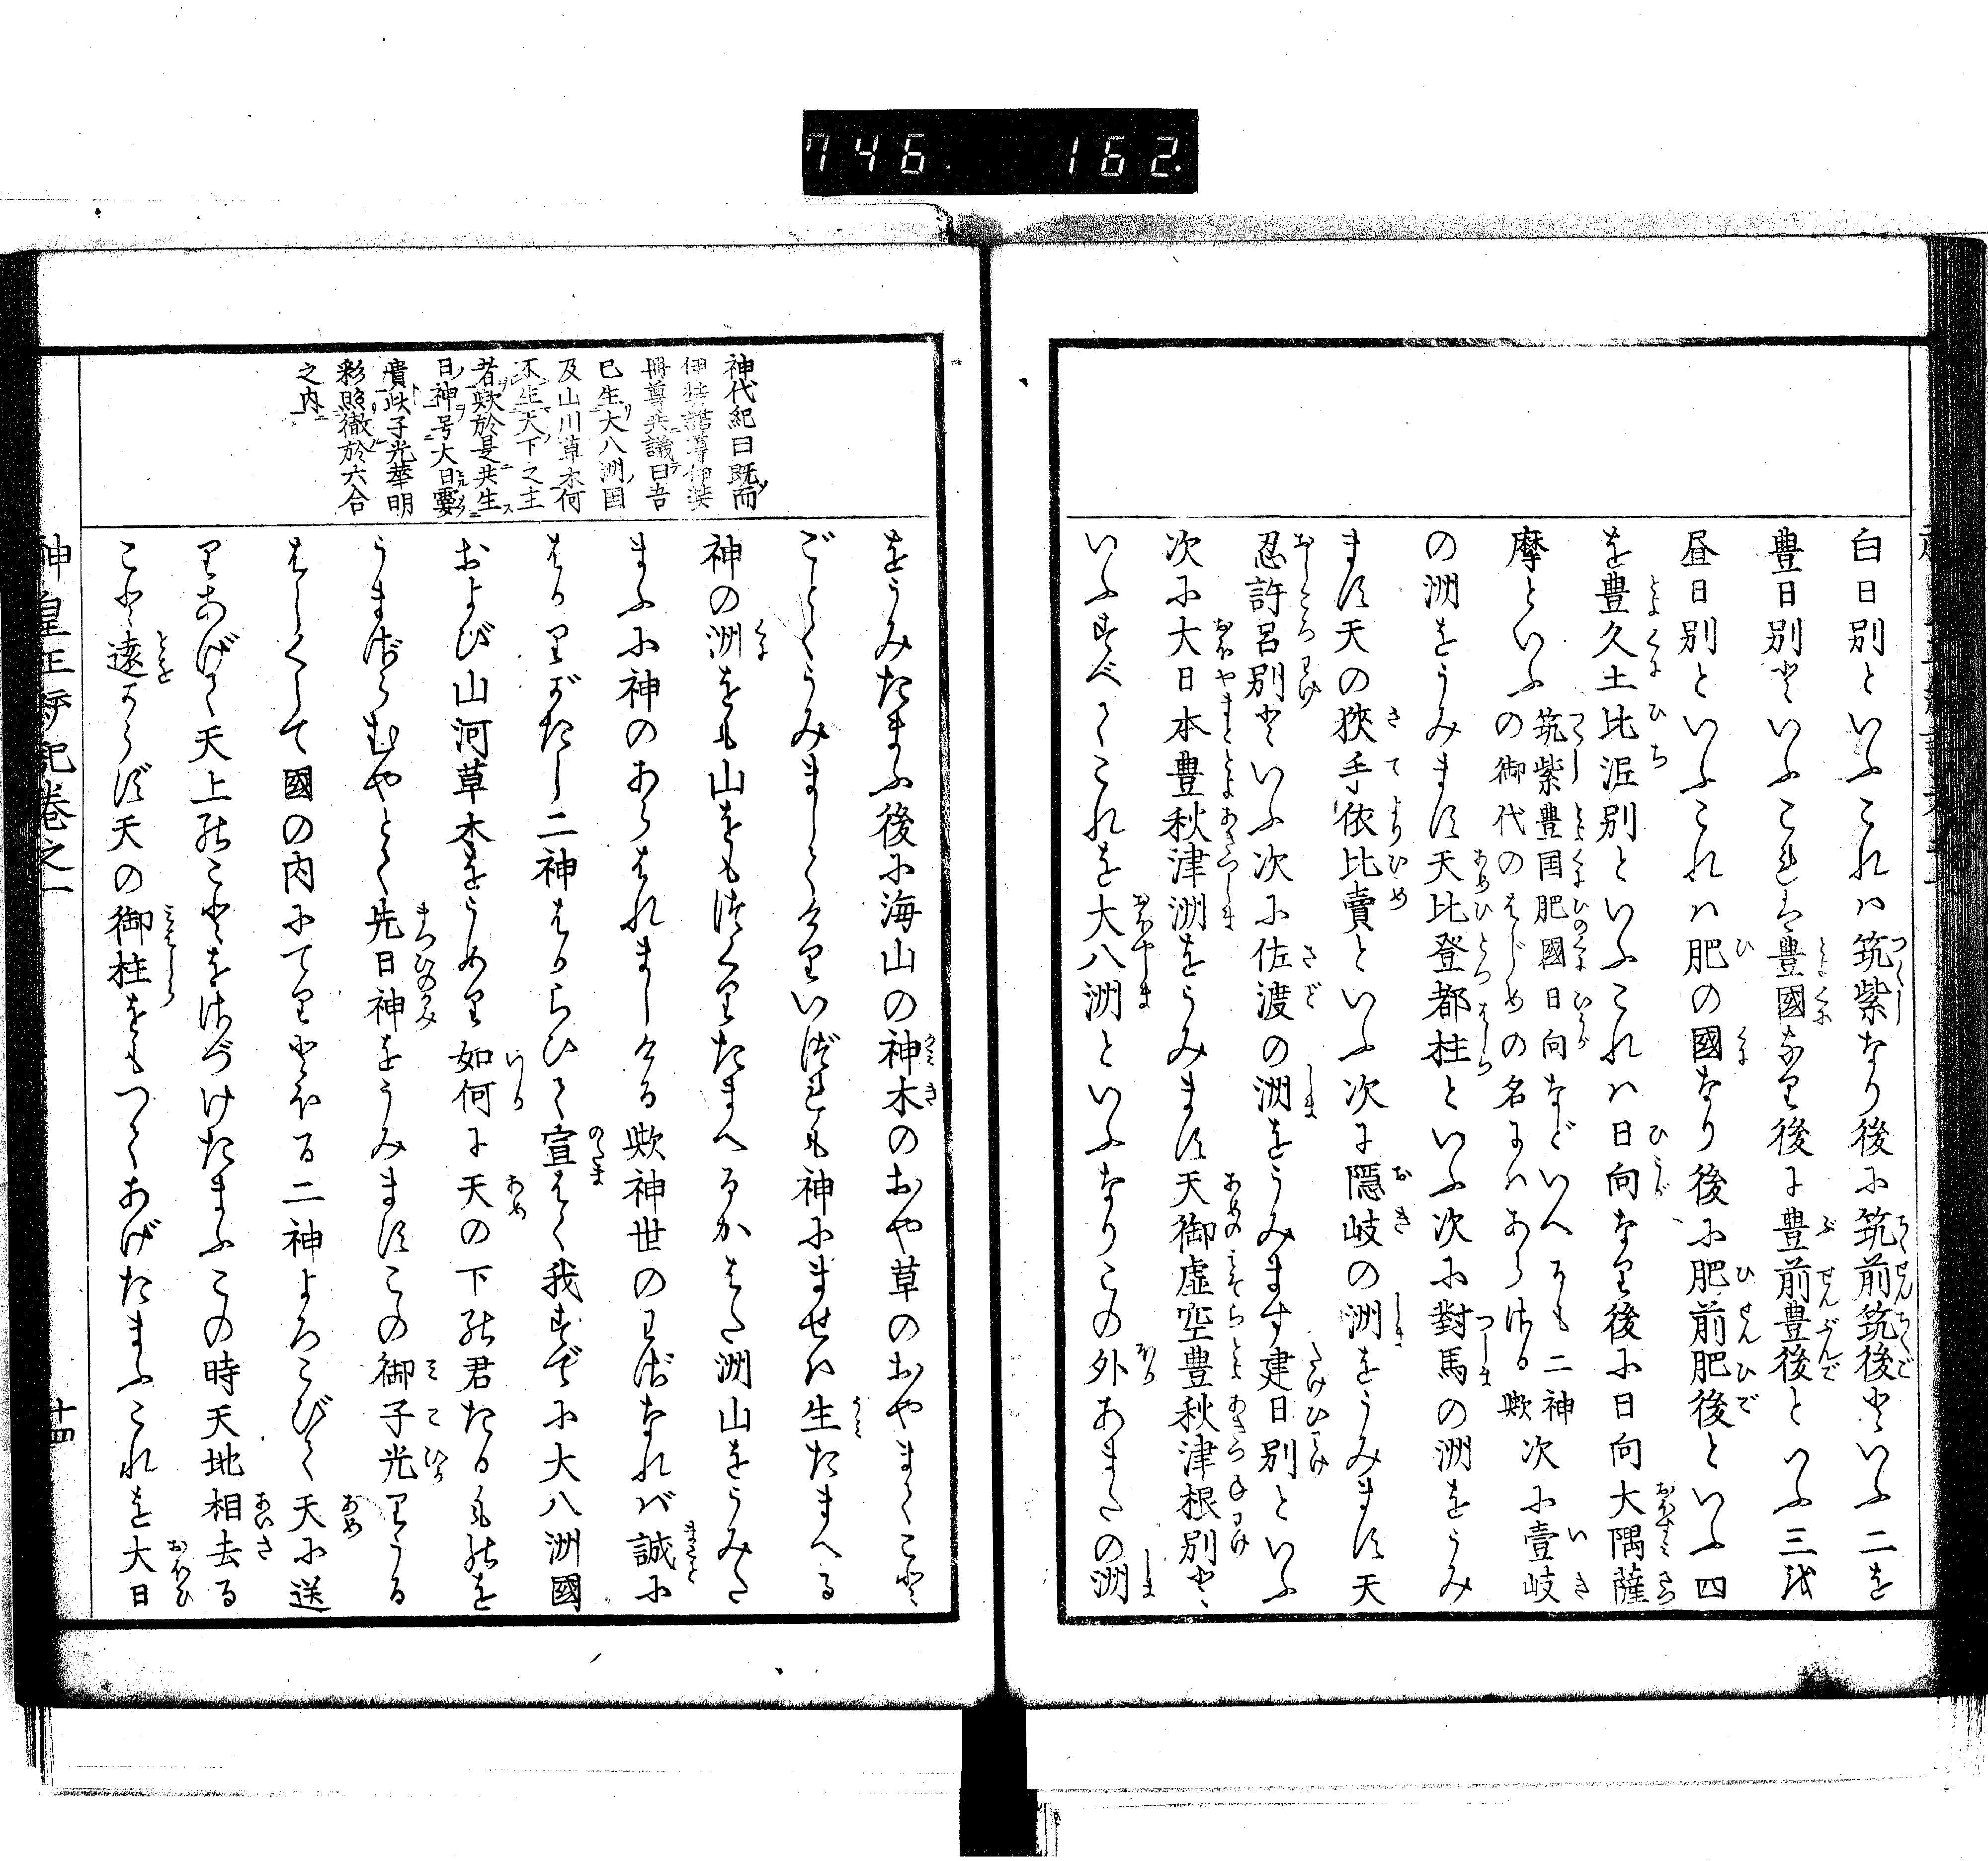 746. 162.
白日別といふこれハ筑紫なり後に筑前筑後といふ二を
豊日別といふこれは豊國なり後に豊前豊後といふ三を
昼日別といふこれハ肥の國なり後に肥前肥後といふ四
を豊久土比泥別といふこれハ日向なり後に日向大隅薩
摩といふ
筑紫豊国肥國日向などいへるも二神
の御代のはじめの名にハあらざる歟
次に壹岐
の洲をうみます天比登都柱といふ次に對馬の洲をうみ
ます天の狹手依比賣といふ次に隱岐の洲をうみます天
忍許呂別といふ次に佐渡の洲をうみます建日別といふ
次に大日本豊秋津洲をうみます天御虚空豊秋津根別と
いふすべてこれを大八洲といふなりこの外あまたの洲
をうみたまふ後に海山の神木のおや草のおやまでこと〴〵
ごとくうみましてけりいづれも神にませバ生たまへる
神の洲をも山をもつくりたまへるかはた洲山をうみた
まふに神のあらはれましける歟神世のわざなれバ誠に
はかりがたし二神はからひて宣はく我すでに大八洲國
および山河草木をうめり如何に天の下の君たるものを
うまざらむやとて先日神をうみますこの御子光りうる
はしくして國の内にてりとほる二神よろこびて天に送
りあげて天上のことをさづけたまふこの時天地相去る
こと遠からず天の御柱をもつてあげたまふこれを大日
神代紀曰既而
伊弉諾尊伊弉
冊尊共議曰吾
已生大八洲国
及山川草木何
不生天下之主
者歟於是共生
日神号大日孁
貴此子光華明
彩照徹於六合
之内
神皇正統記卷之一
十四